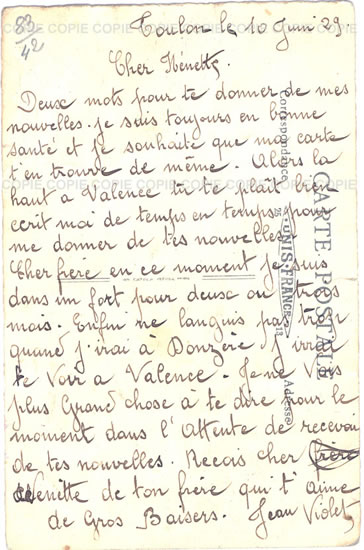 83
42
COPIE COPIE COPIE COPIE COPIE COPIE
Toulon le 10 Juin 29
Cher Nénette.
Deux mots pour te donner de mes
nouvelles. je suis toujours en bonne
santé et je souhaite que ma carte
t'en trouve de même. Alors la
haut a Valence tu te plaît bien
ecrit moi de temps en temps pour
me donner de tes nouvelles
Cher frère en ce moment je suis
dans un fort pour deux ou trois
mois. Enfin ne languis pas trop
quand j'irai à Donzère j'irai
te Voir a Valence. Je ne Vois
plus Grand chose à te dire pour le
moment dans l'Attente de recevoir
de tes nouvelles. Recois cher frère
Nenette de ton frère qui t'aime
de Gros Baisers. Jean Violet
CARTE POSTALE
Correspondance
UNIS-FRANCE
Adresse